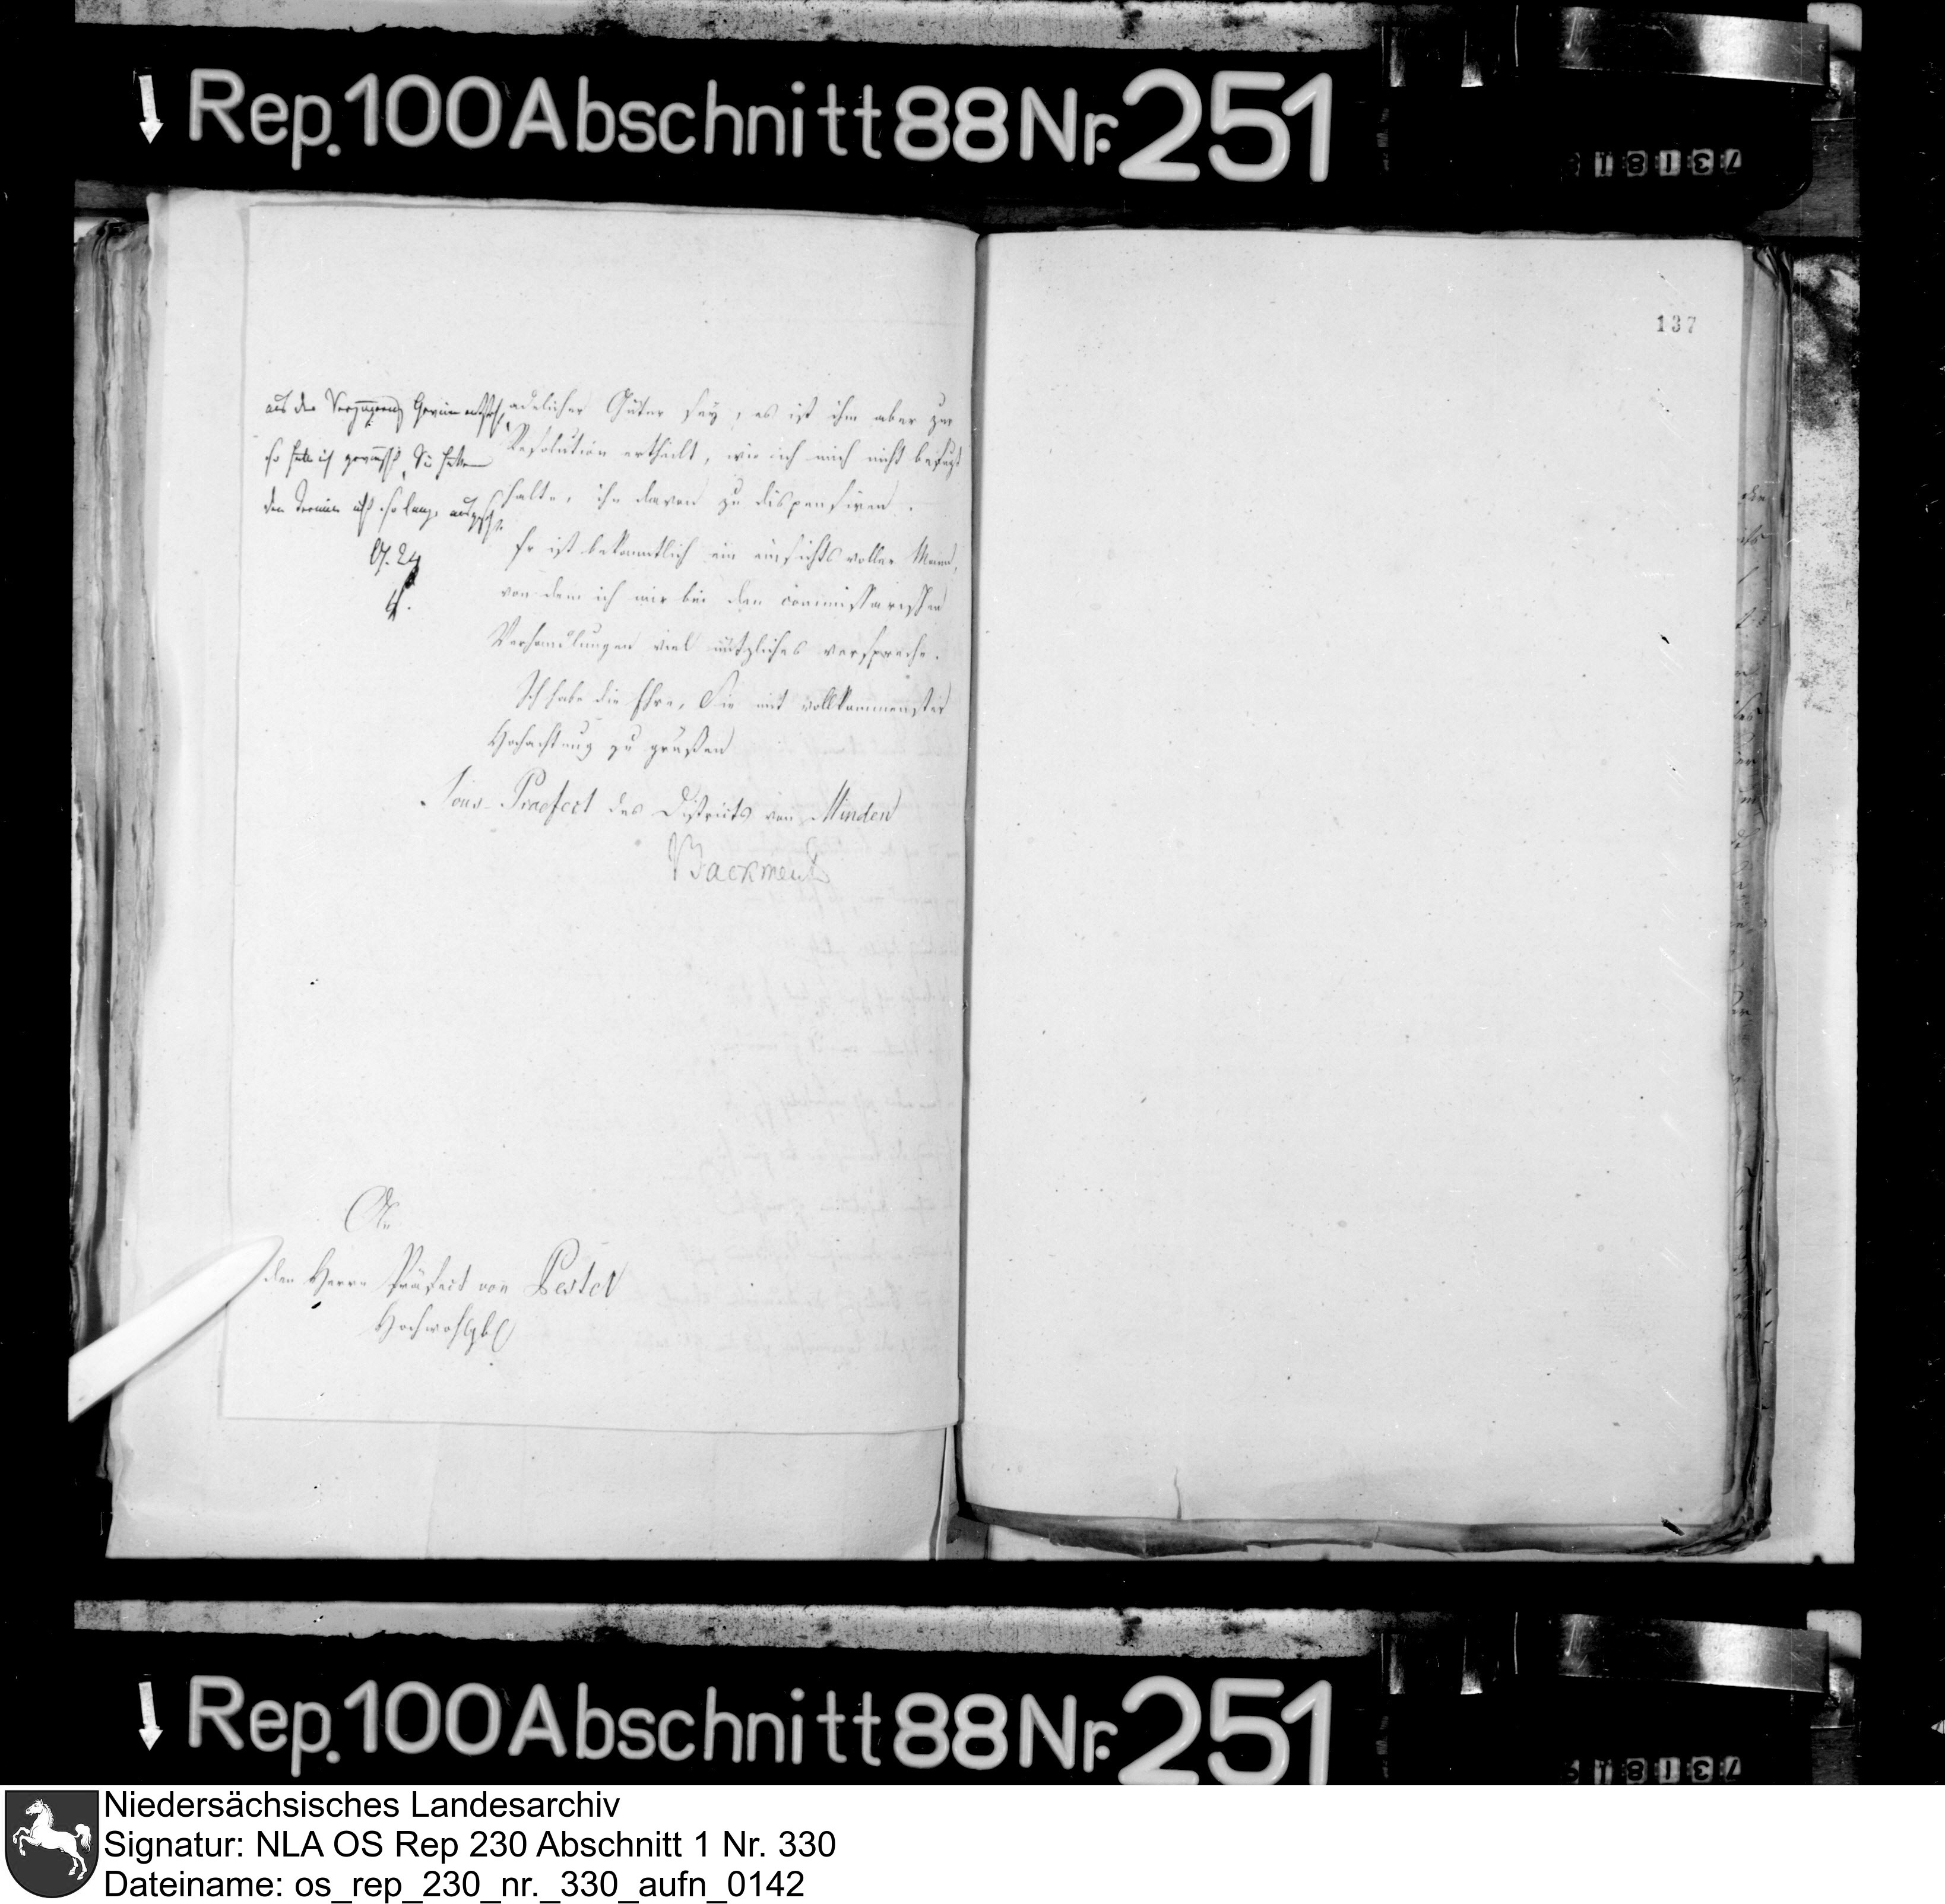 Rep. 100 Abschnitt 88 Nr. 251
137
aus der
so hätte ich gewünscht, Sie hätten
den Termin nicht so lange ausgesetzt.
adelicher Güter sey, es ist ihm aber zur
Resolution ertheilt, wie ich mich nicht befugt
halte, ihn davon zu dispensiren.
Er ist bekanntlich ein einsichtsvoller Mann,
von dem ich mir bei den commissarischen
Verhandlungen viel nützliches verspreche.
Ich habe die Ehre, Sie mit vollkommenster
Hochachtung zu grüßen
Sous-Praefect des Districts von Minden
Backmeister
An
den Herrn Präfect von Pestel
Hochwohlgb
Rep. 100 Abschnitt 88 Nr. 251
Niedersächsisches Landesarchiv
Signatur: NLA OS Rep 230 Abschnitt 1 Nr. 330
Dateiname: os_rep_230_nr._330_aufn_0142